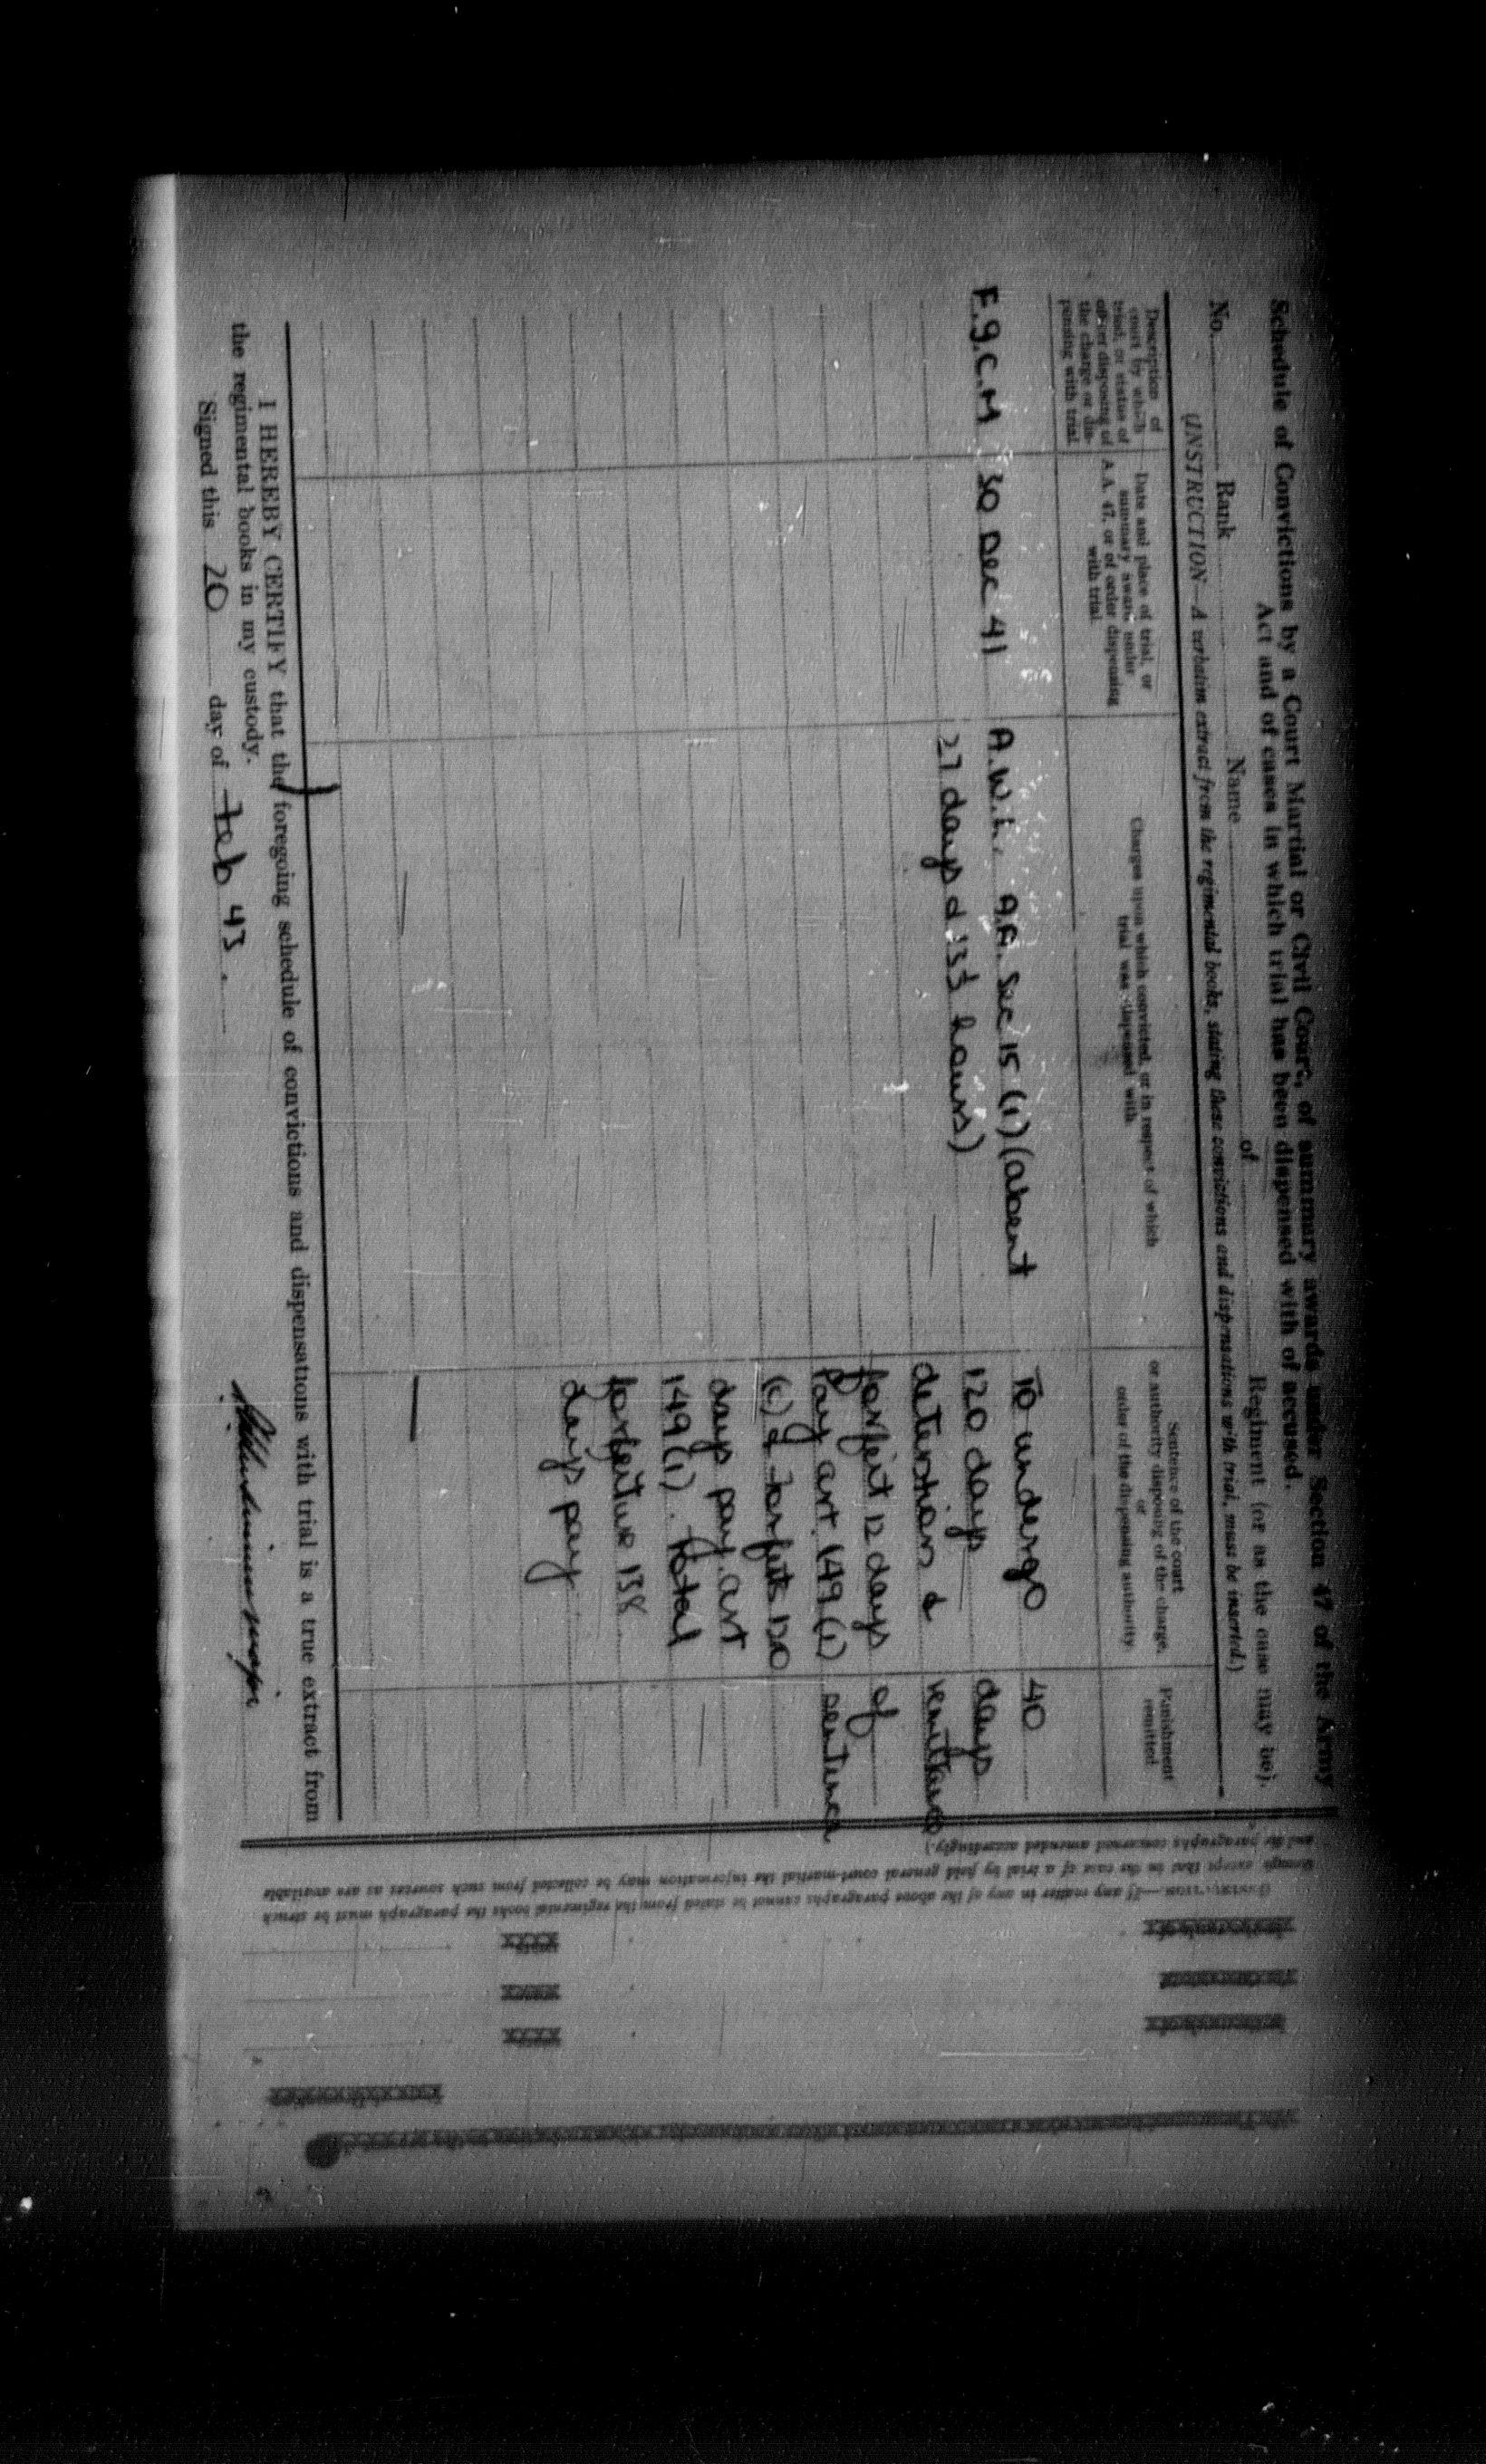 Schedule of Convictions by a Court Martial or Civil Court, of summary awards under Section 47 of the Army
Act and of cases in which trial has been dispensed with of accused.
No. Rank Name of Regiment (or as the case may be).
(INSTRUCTION—A verbatim extract from the regimental books, stating these convictions and dispensations with trial, must be inserted.)
Description of
court by which
tried, or status of
officer disposing of
the charge or dis-
pensing with trial
Date and place of trial, or
summary award under
A.A. 47, or of order dispensing
with trial
Charges upon which convicted, or in respect of which
trial was dispensed with
Sentence of the court
or authority disposing of the charge,
or
order of the dispensing authority
Punishment
remitted
F.G.C.M 30 Dec 41 A.W.L. A.A. Sec 15 (1) (absent
27 days & 13½ hours)
To undergo
120 days
detention &
forfeit 12 days
Pay art. 149 (1)
(c) & forfeits 120
days pay. art
149 (1). Total
forfeiture 138
days pay
40
days
of
sentence
I HEREBY CERTIFY that the foregoing schedule of convictions and dispensations with trial is a true extract from
the regimental books in my custody.
Signed this 20 day of Feb 43.
(INSTRUCTION.—If any matter in any of the above paragraphs cannot be stated from the regimental books the paragraph must be struck
through, except that in the case of a trial by field general court-martial the information may be collected from such sources as are available
and the paragraphs concerned amended accordingly.)